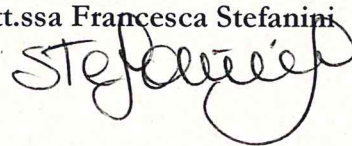 tt.ssa Francesca Stefanini
Stefanini